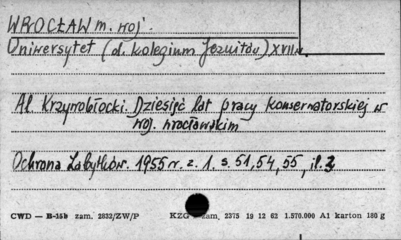 WROCŁAW m. woj.
Uniwersytet (d. kolegium Jezuitów) XVII w.
Al. Krzywobłocki. Dziesięć lat pracy konserwatorskiej w
woj. wrocławskim
Ochrona Zabytków. 1955 r. z. 1. s. 51, 54, 55, il. 3
CWD — B-15b zam. 2832/ZW/P KZG zam, 2375 19 12 62 1.570.000 A1 karton 180 g